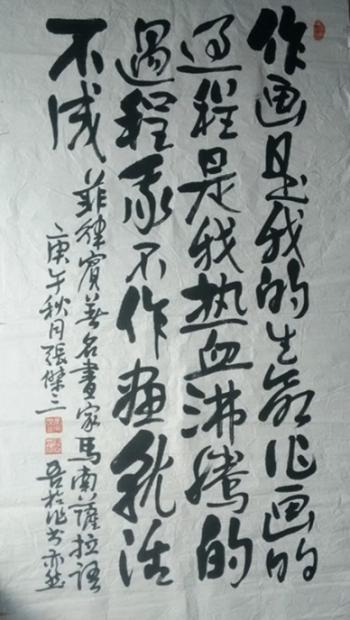 作画是我的生命作画的
过程是我热血沸腾的
过程我不作画就活
不成
菲律賓著名畫家馬南薩拉語
庚午秋月張傑三
吾於作书亦然